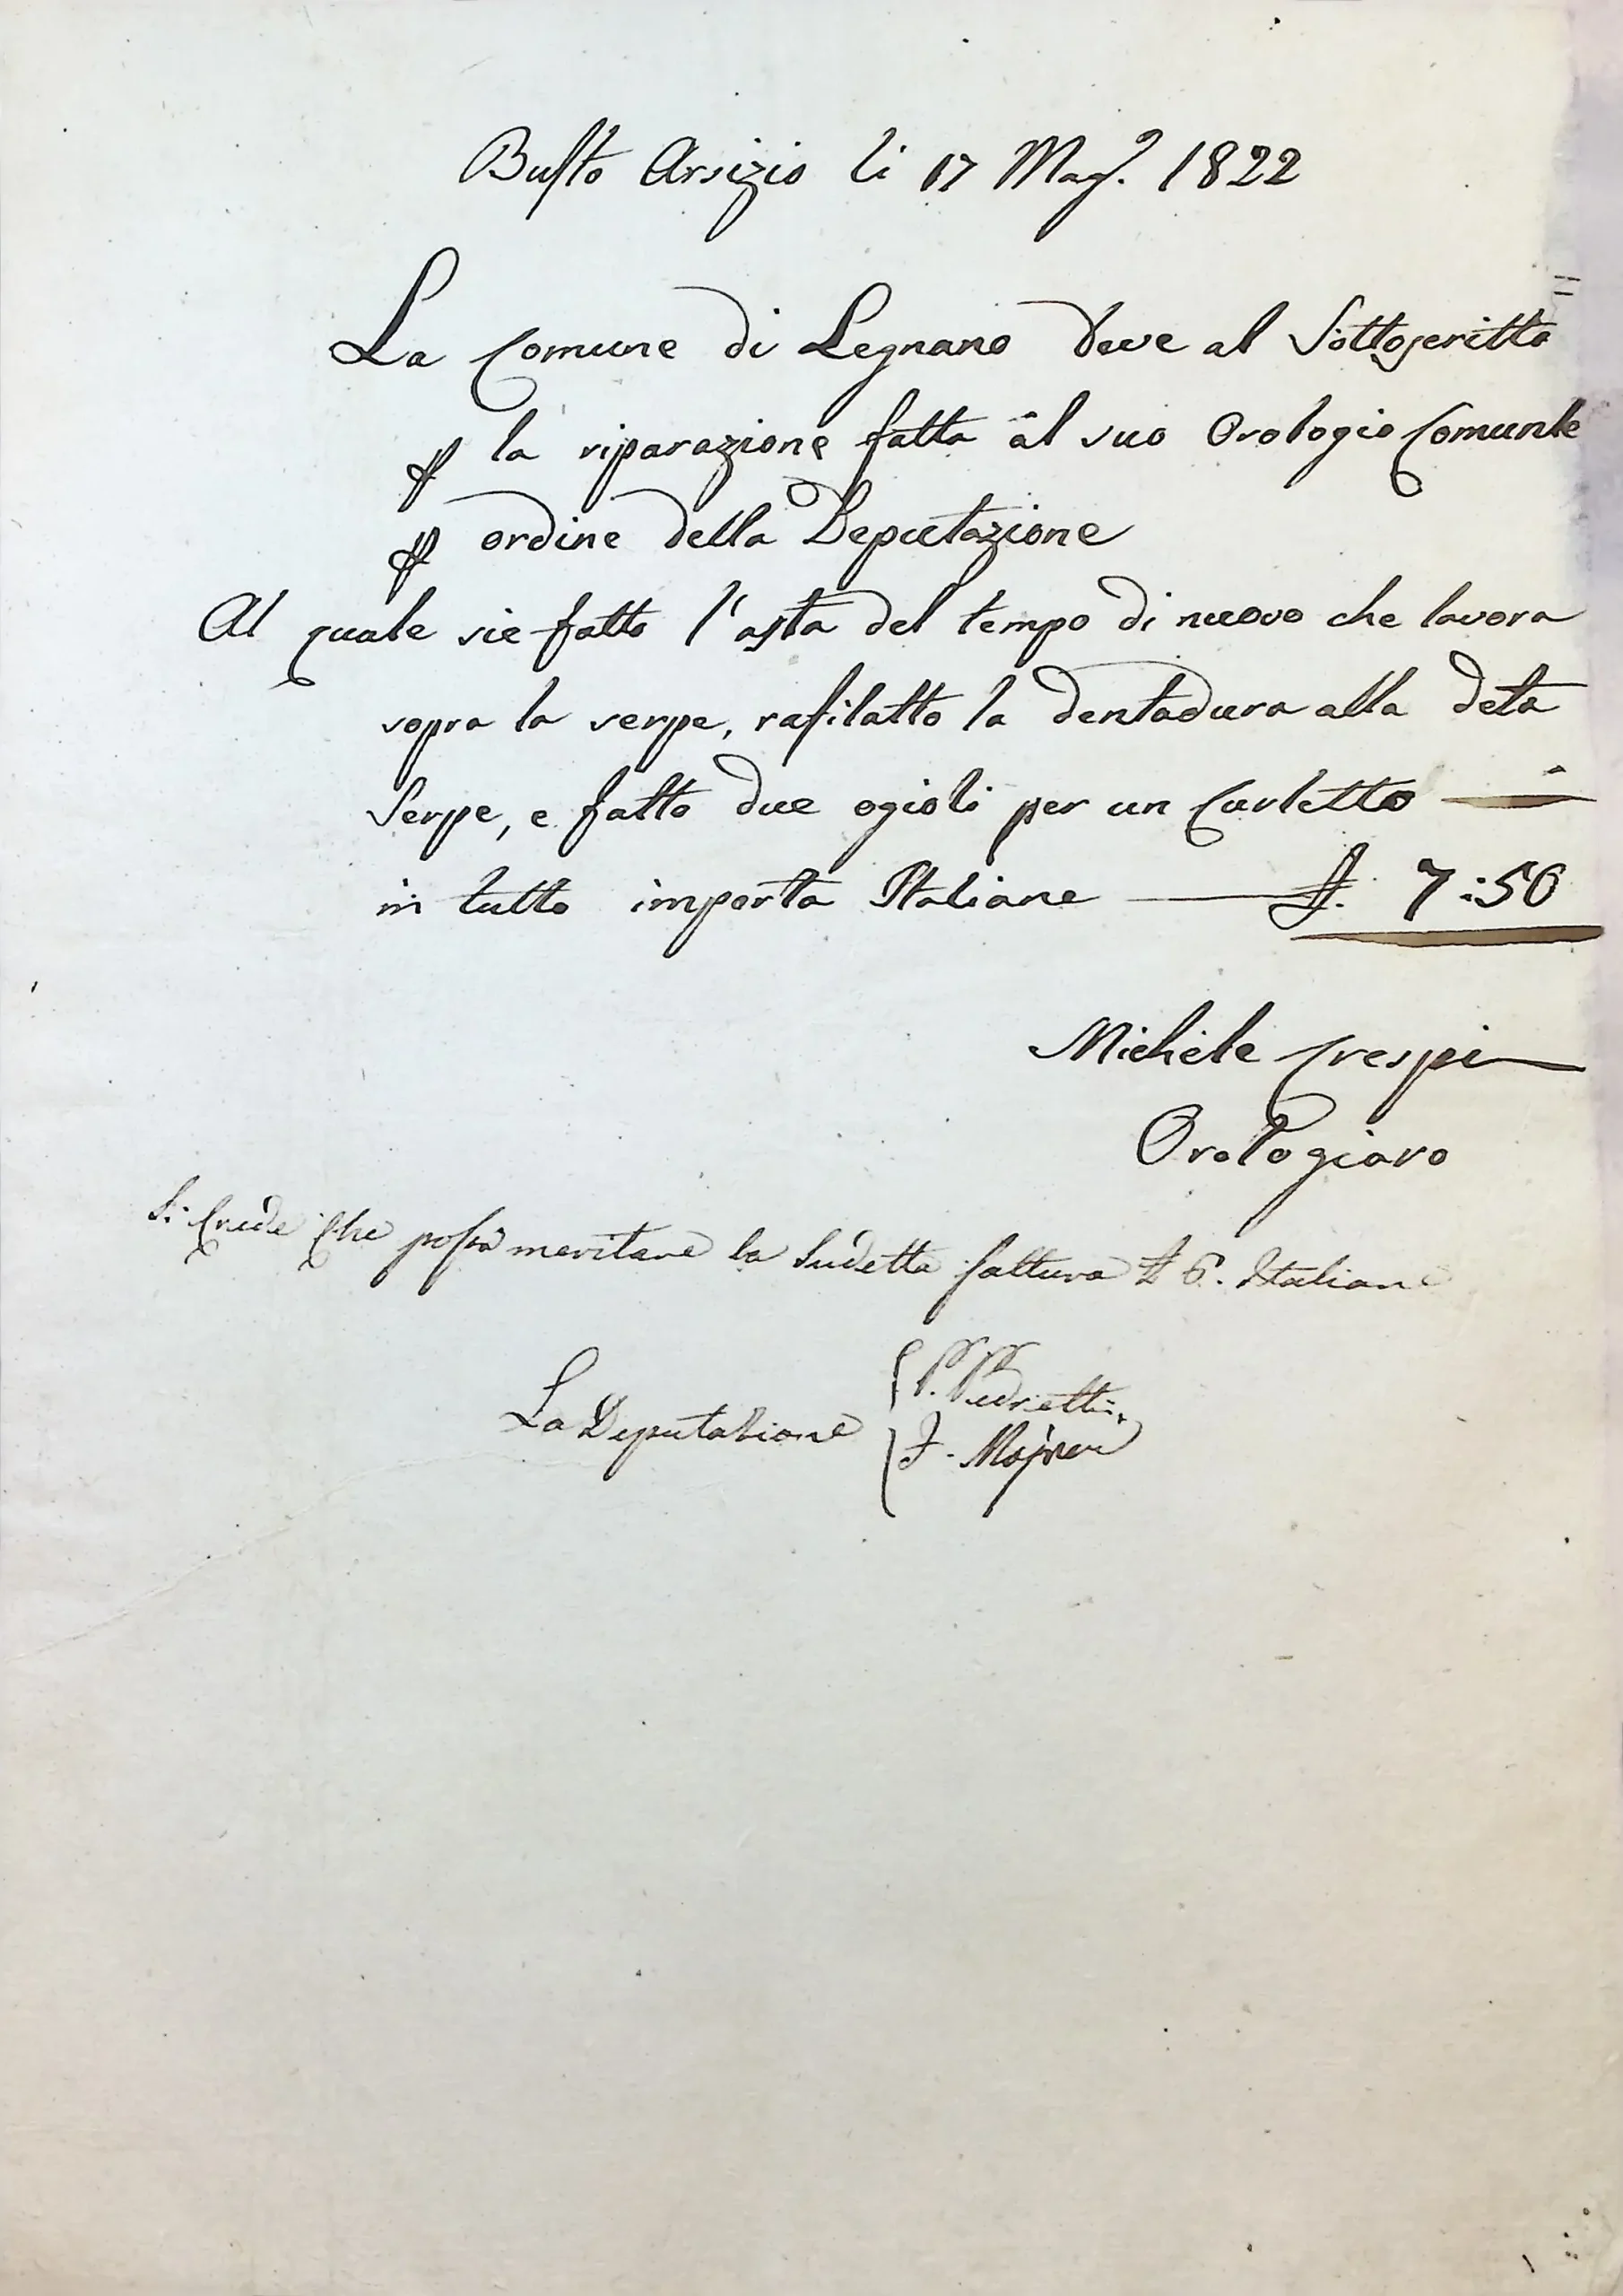 Busto Arsizio li 17 Mag.º 1822
La Comune di Legnano deve al Sottoscritto
per la riparazione fatta al suo Orologio Comunle
per ordine della Deputazione
Al quale sie fatto l'asta del tempo di nuovo che lavora
sopra la serpe, rafilatto la dentadura alla deta
Serpe, e fatto due ogioli per un Carletto
in tutto importa Italiane £. 7:50
Michele Crespi
Orologiaro
Si Crede Che possa meritare la Sudetta fattura £ 6. Italiane
La Deputazione P. Pedretti